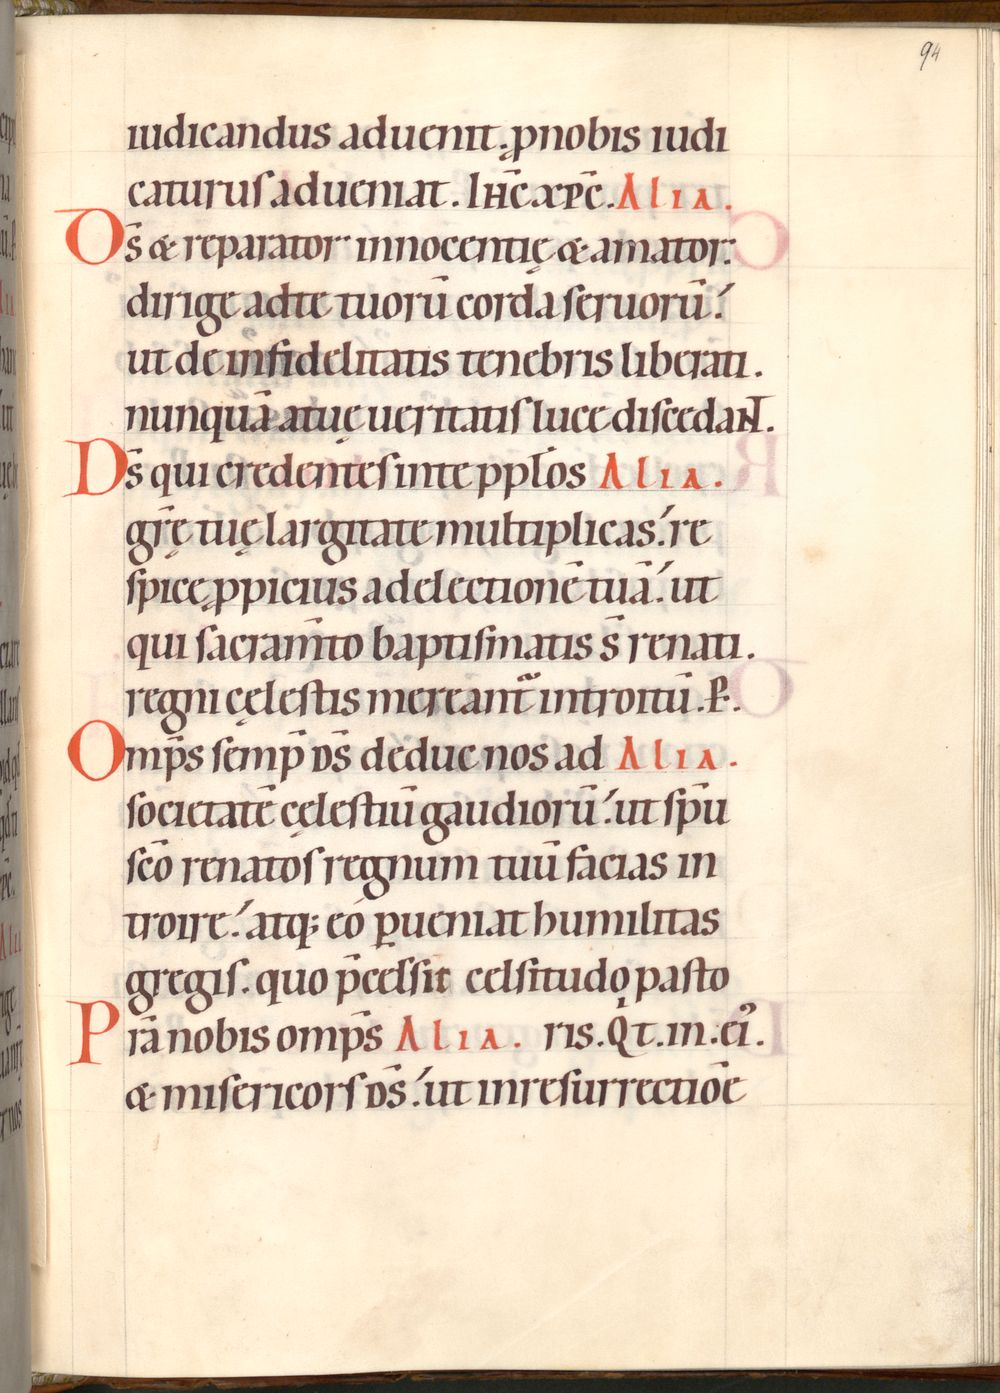 94
iudicandus aduenit. ꝓ nobis iudi
caturus adueniat. IHC̄ XPC̄. Alia.
Ds̄ & reparator innocentię & amator.
dirige ad te tuorū corda seruorū!
ut de infidelitatis tenebris liberati.
nunquā a tuę ueritatis luce discedaNT.
Ds̄ qui credentes in te pplōs Alia.
gr̄ę tuę largitate multiplicas! re
spice ꝓpicius ad electionē tuā! ut
qui sacram̄to baptismatis s̄ renati.
regni cęlestis mereant᷑ introitū. P̄.
Omp̄s semp̄ Ds̄ deduc nos ad Alia.
societatē cęlestiū gaudiorū! ut sp̄u
sc̄o renatos regnum tuū facias in
troire! atq; eo ꝑueniat humilitas
gregis. quo p̄cessit celsitudo pasto
Pr̄a nobis omp̄s Alia. ris. Qͥ t. in. ci᷒.
& misericors Ds̄! ut in resurrectiōe